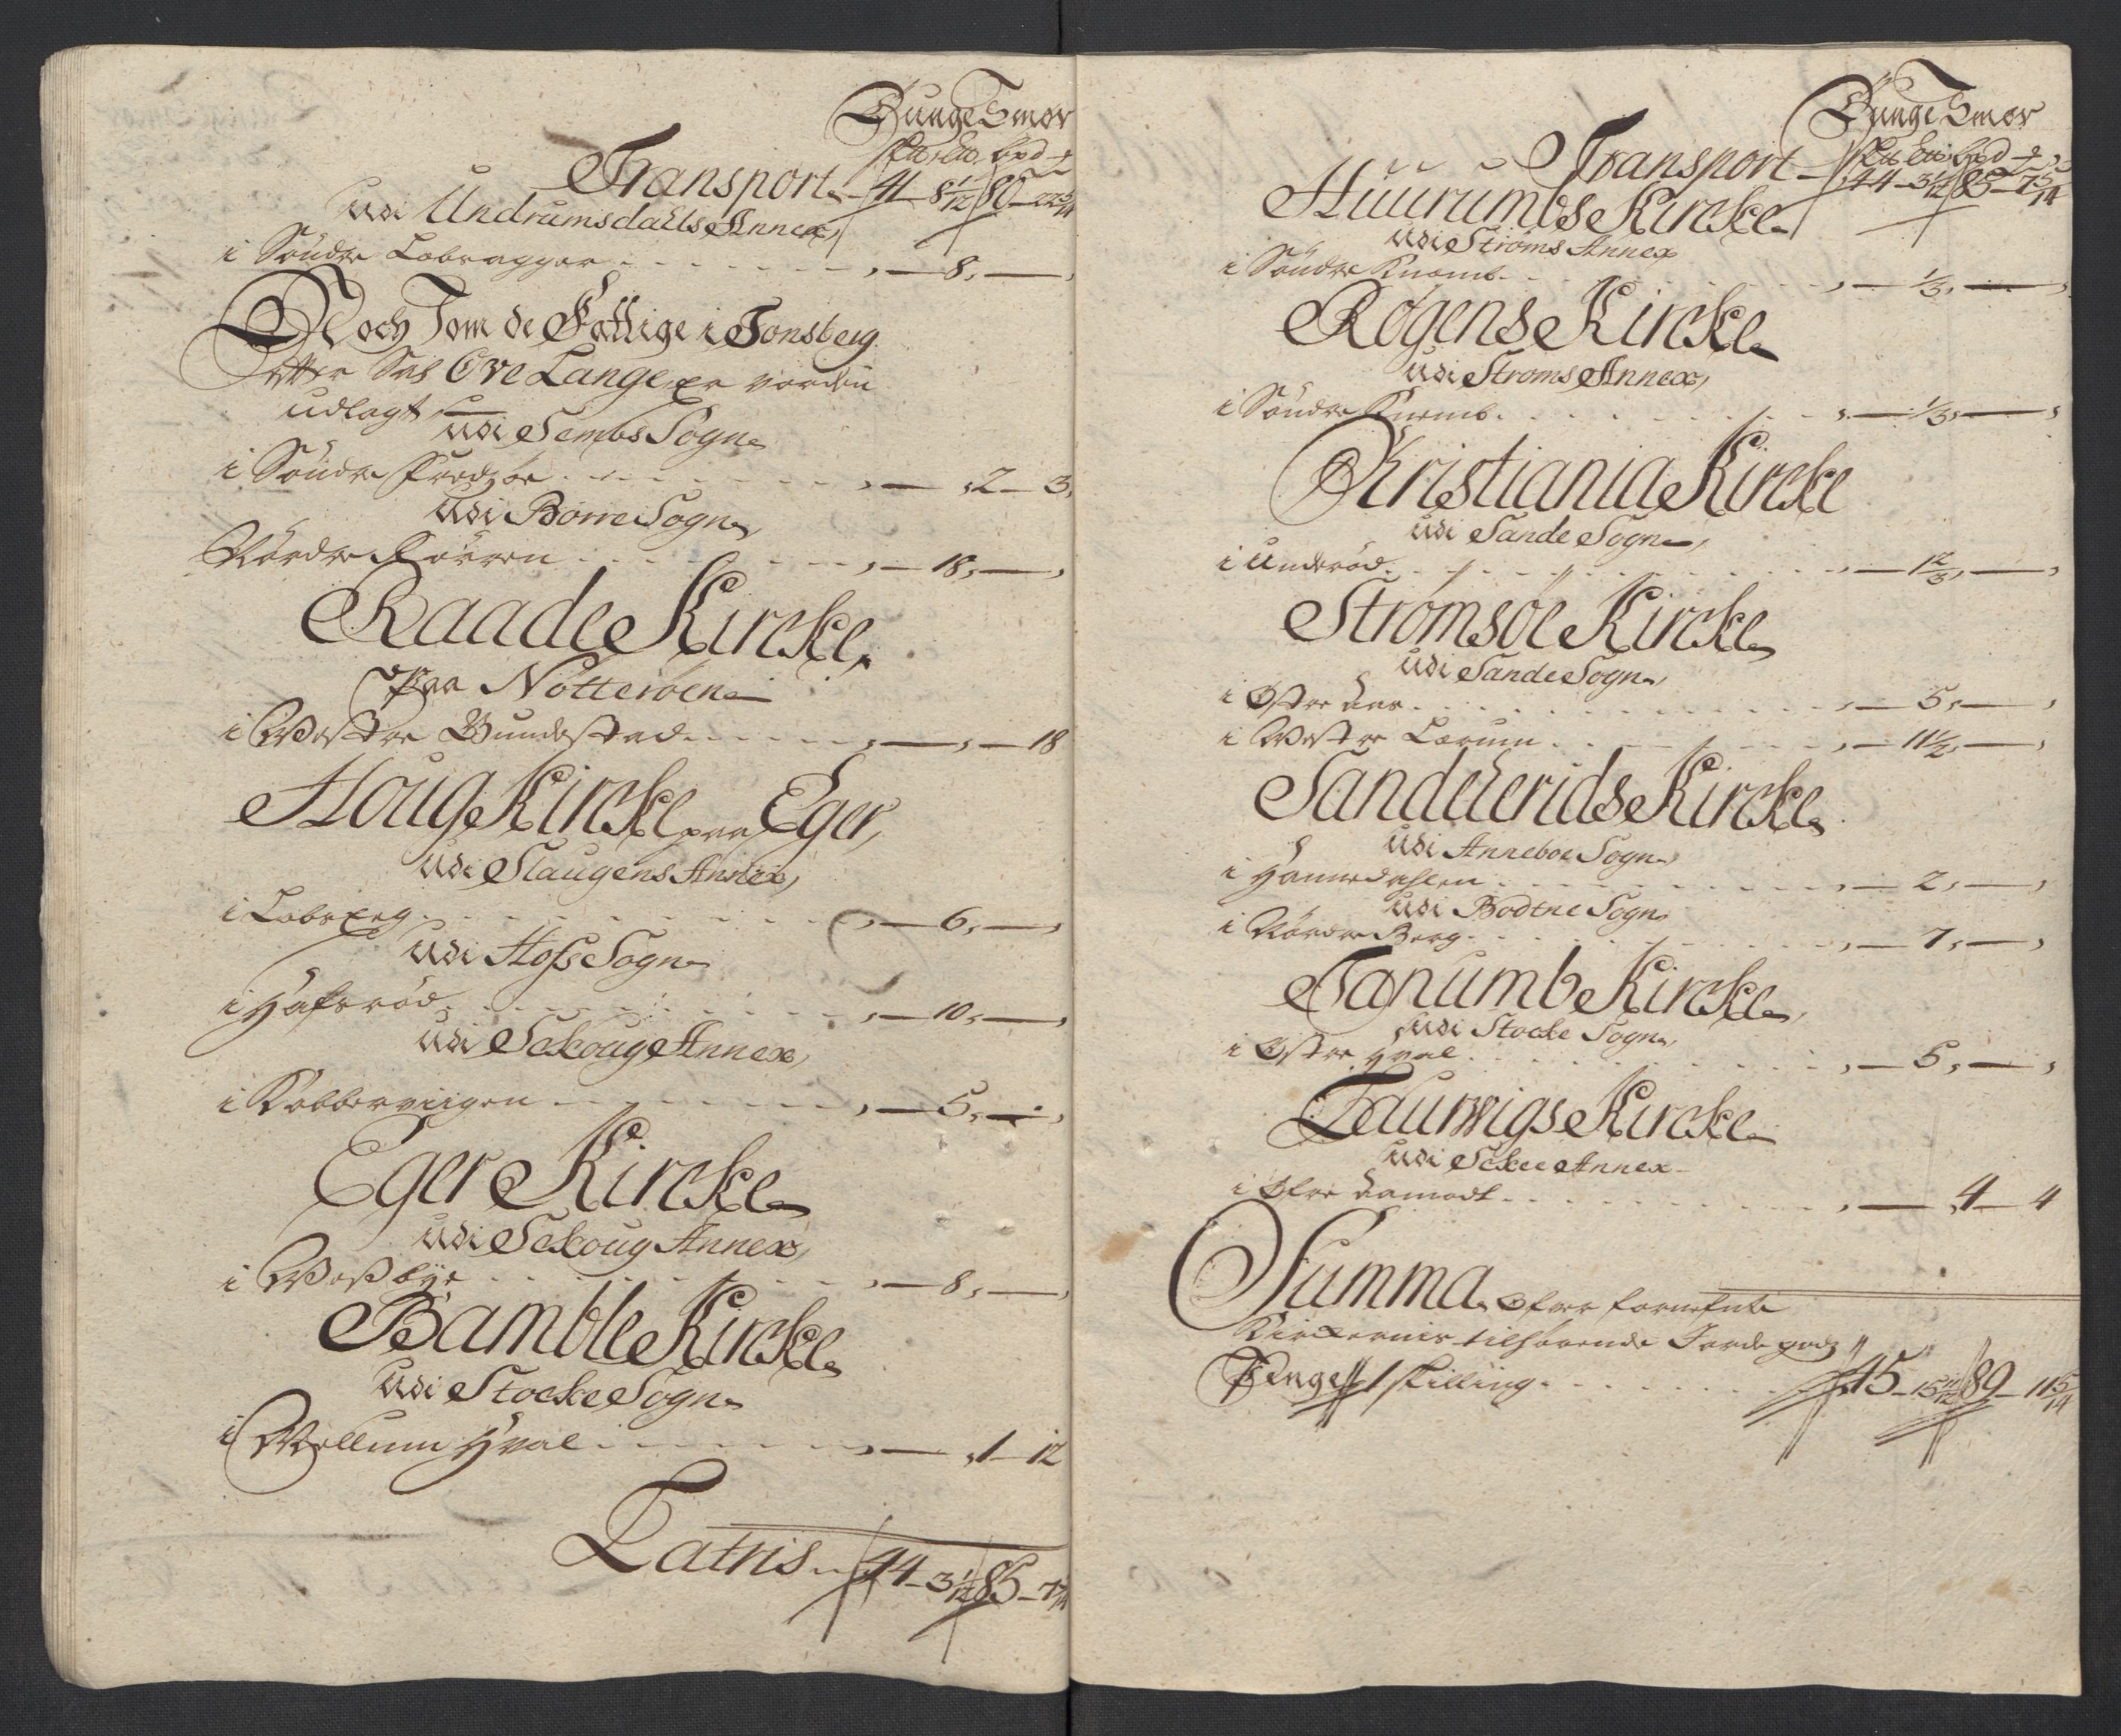 Tunge Smør
Transport 41 – 8 1/12 80 –
udi Undrumsdahls Annex
i Søndre Labragger – 8 –
Noch Som de Fattige i Tonsberg
efter Sal Ove Lange er vorden
udlagt
udi Sembs Sogn
i Søndre – 2 – 3
udi Borre Sogn
Nordre – 18 –
Raade Kircke
Paa Nøtterøen
i Westre Bundestad – 18
Houg Kircke paa Eger
udi Slaugens Annex
i – 6 –
udi Hofs Sogn
i Hafsrød – 10 –
udi Sckoug Annex
i Kobberviigen – 5 –
Eger Kircke
udi Sckoug Annex
i Wessbye – 8 –
Bamble Kircke
udi Stocke Sogn
i Mellum Hval – 1 – 12
Latris 44 – 3 1/12 85 – 7 5/14
Tunge Smør
Transport 44 – 3 1/12 85 – 7 5/14
Huurumbs Kircke
udi Strøms Annex
i Søndre – 1/3 –
Røgens Kircke
udi Strøms Annex
i Søndre – 1/3 –
Christiania Kircke
udi Sande Sogn
i Underød – 1 2/3 –
Strømsøe Kircke
udi Sande Sogn
i Østre – 5 –
i Westre Lærum – 11 1/2 –
Sandeherids Kircke
udi Anneboe Sogn
i Hannedahlen – 2 –
udi Bodtne Sogn
i Nordre Berg – 7 –
Tanumb Kircke
udi Stocke Sogn
i Østre Hval – 5 –
Laurwigs Kircke
udi Sckee Annex
i Øfre – 4 – 4
Summa ofver fornefnte
Kirkernis tilhørende Jordegodz
Penge 1 skilling 45 – 15 11/12 89 – 11 5/14